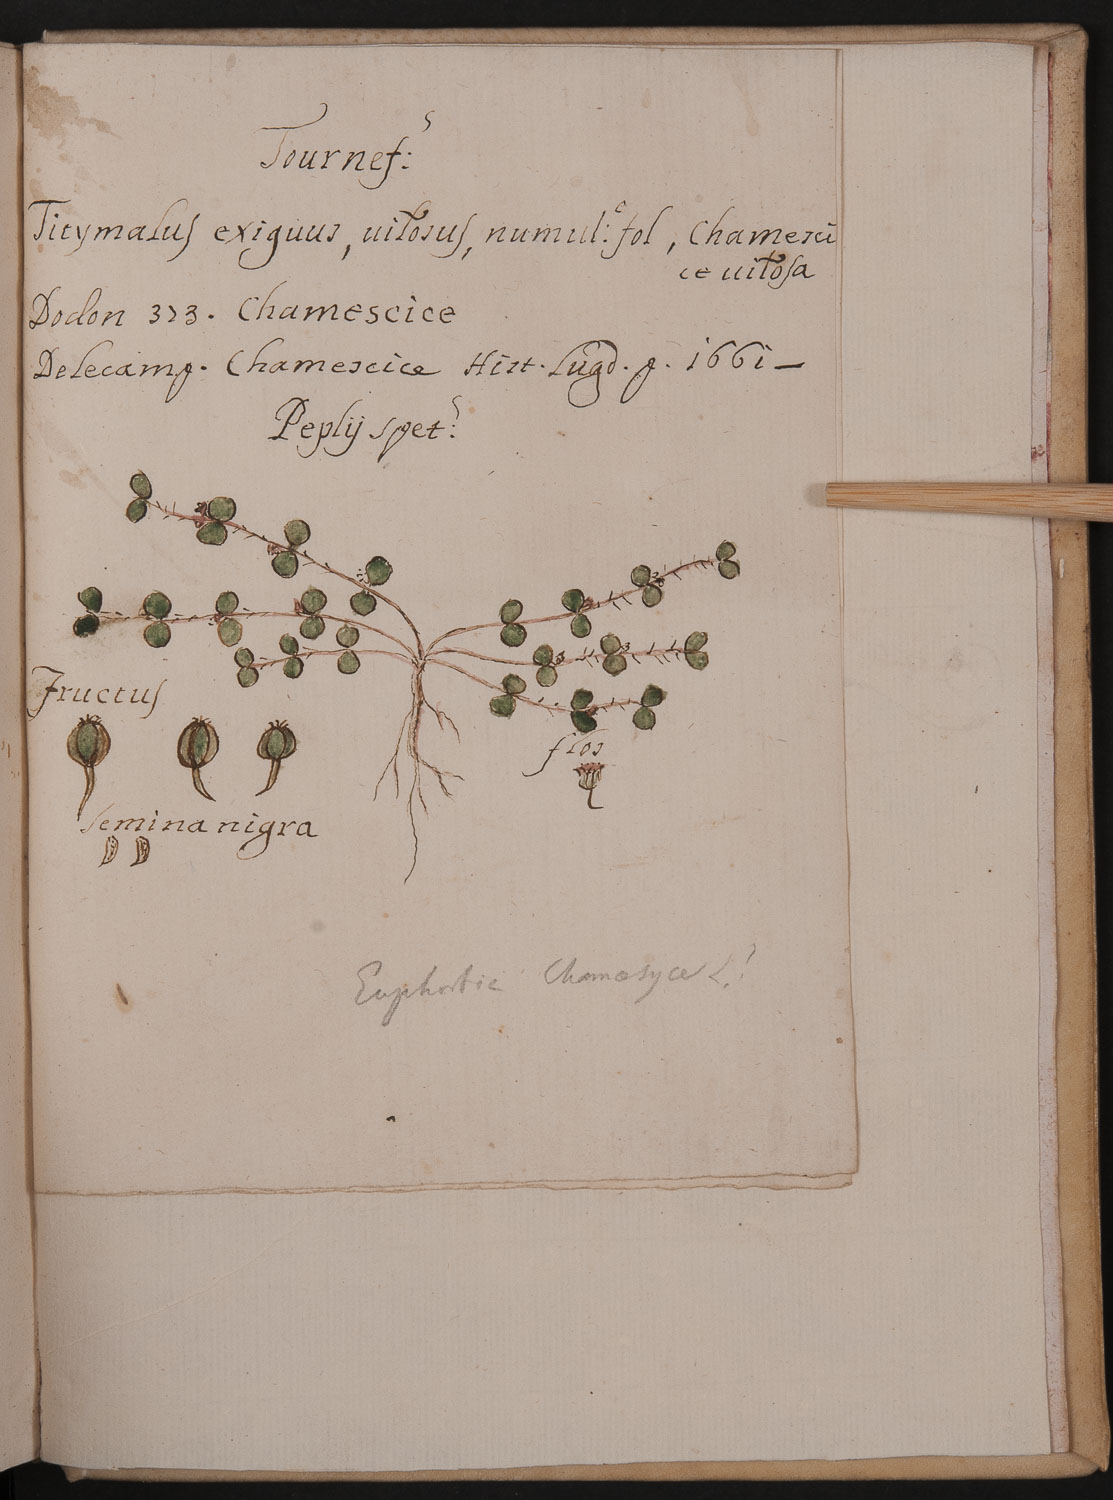 Tournef:s
Titymalus exiguus, uillosus, numul:e fol, Chamesci
ce uillosa
Dodon 373. Chamescice
Delecamp. Chamescice Hist. Lugd. p. 1661—
Peplij spet:s
Fructus
flos
semina nigra
Euphorbia Chamaesyce L.!